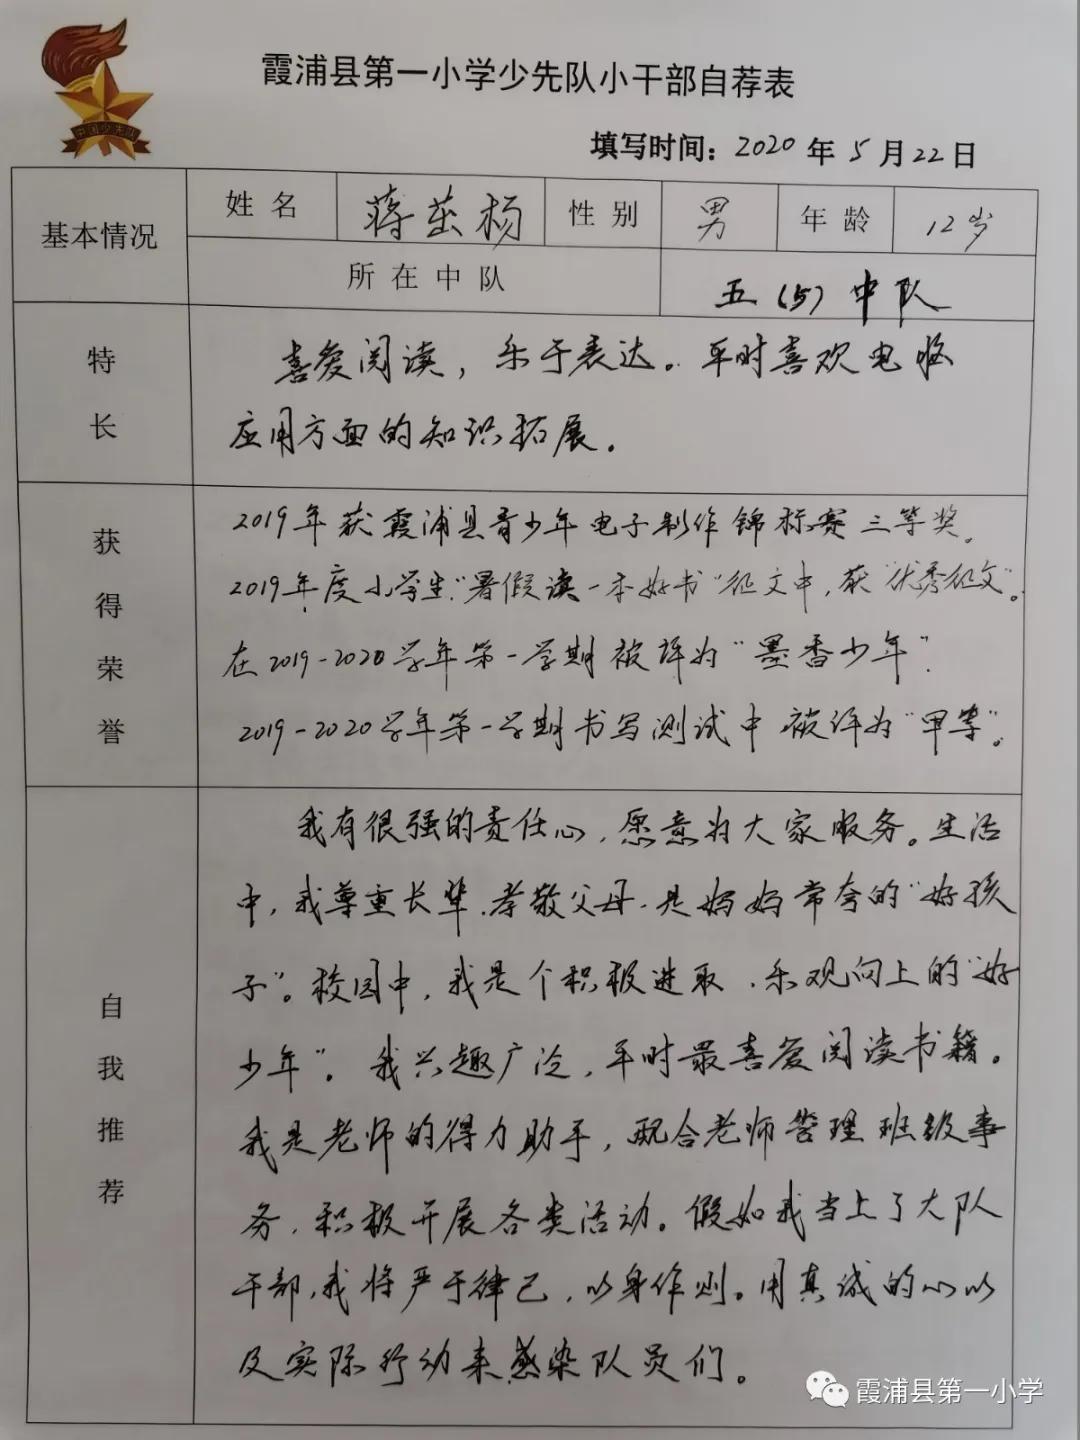 中国少先队
霞浦县第一小学少先队小干部自荐表
填写时间：2020年5月22日
基本情况
姓名 蒋茁杨 性别 男 年龄 12岁
所在中队 五（5）中队
特长
喜爱阅读，乐于表达。平时喜欢电脑
应用方面的知识拓展。
获得荣誉
2019年获霞浦县青少年电子制作锦标赛三等奖。
2019年度小学生"暑假读一本好书"征文中，获"优秀征文"。
在2019-2020学年第一学期被评为"墨香少年".
2019-2020学年第一学期书写测试中被评为"甲等"。
自我推荐
我有很强的责任心，愿意为大家服务。生活
中，我尊重长辈、孝敬父母，是妈妈常夸的"好孩
子"。校园中，我是个积极进取、乐观向上的"好
少年"。我兴趣广泛，平时最喜爱阅读书籍。
我是老师的得力助手，配合老师管理班级事
务，积极开展各类活动。假如我当上了大队
干部，我将严于律己，以身作则。用真诚的心以
及实际行动来感染队员们。
霞浦县第一小学